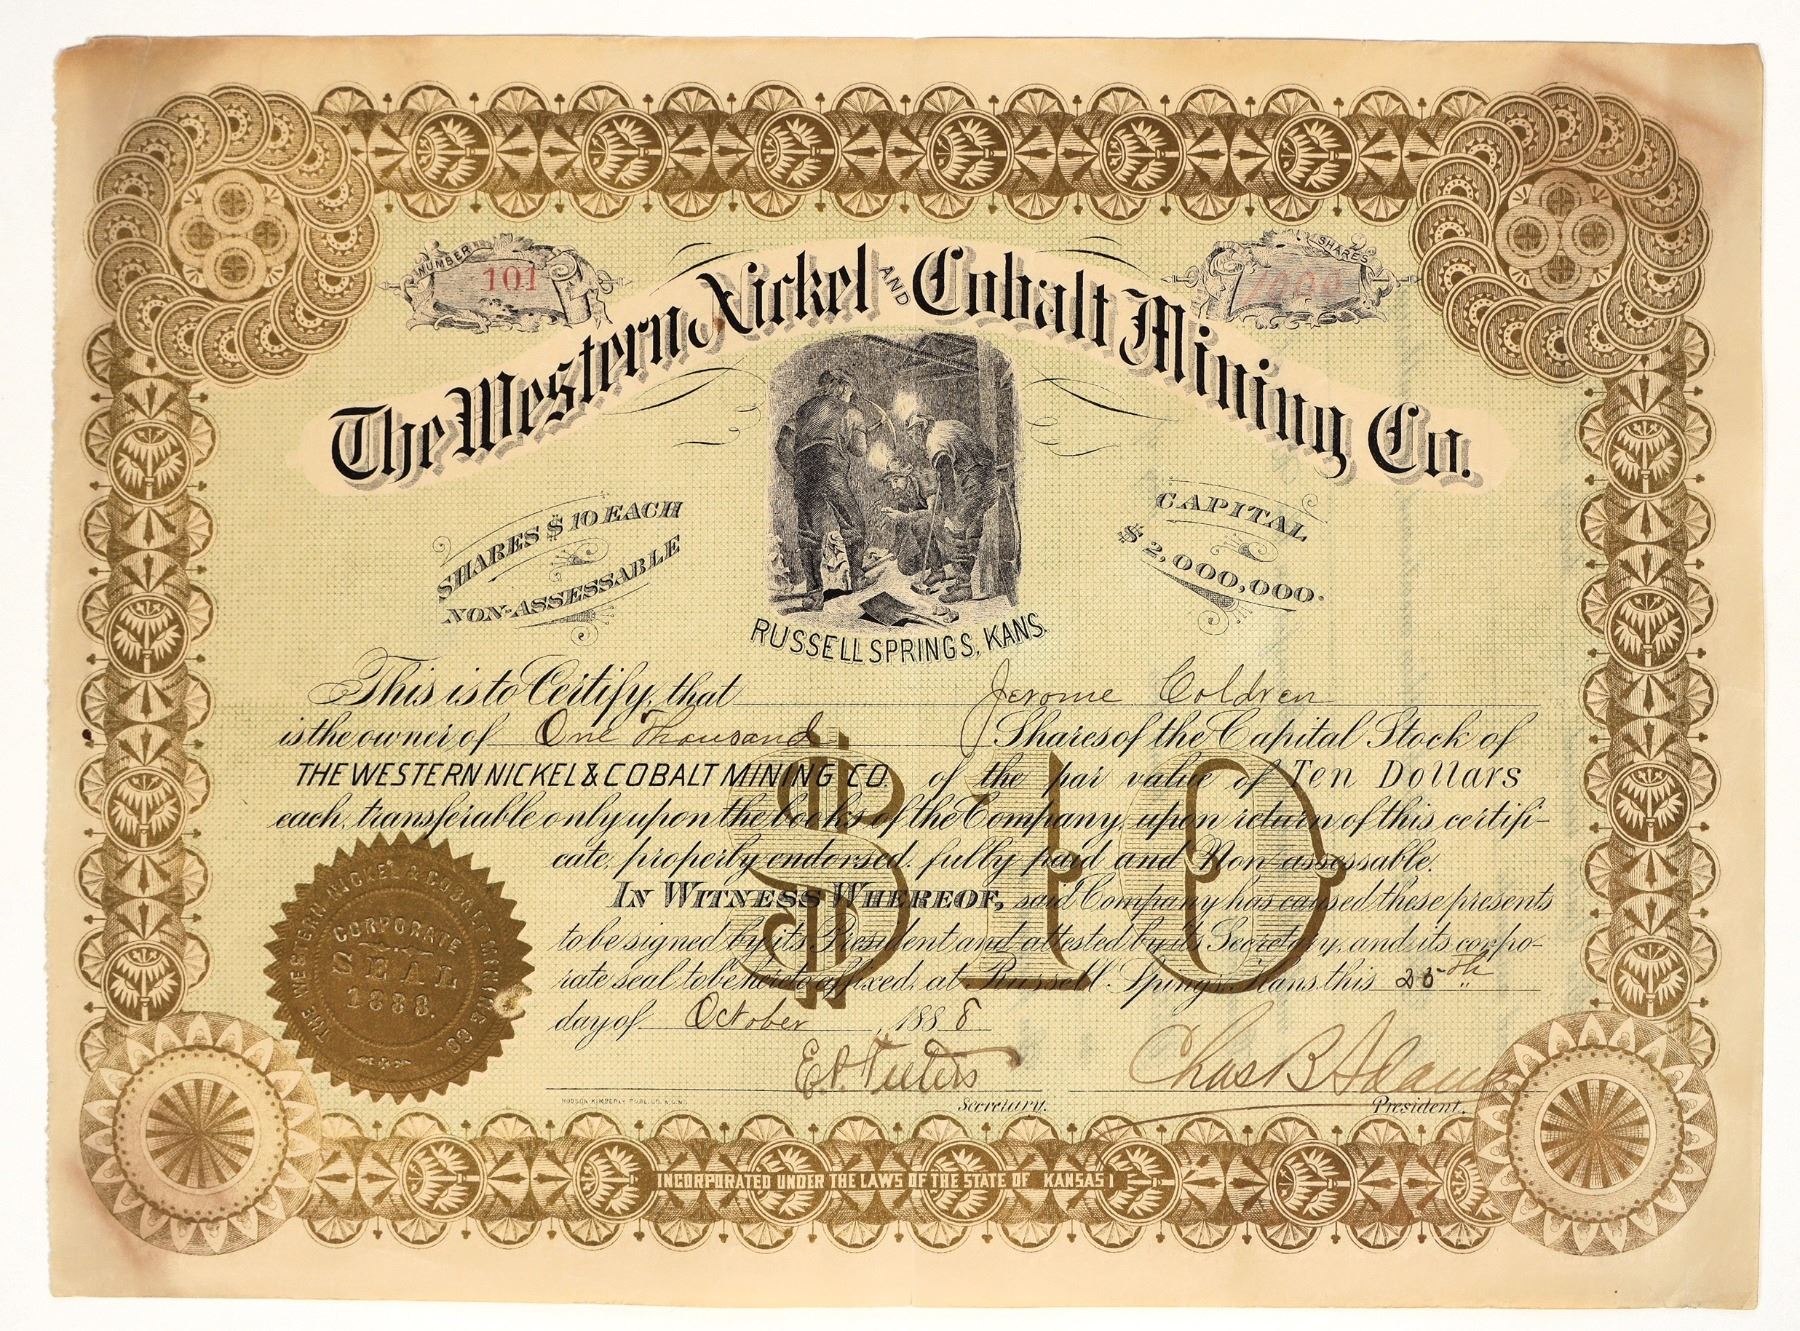 NUMBER
101
SHARES
1000
The Western Nickel AND Cobalt Mining Co.
SHARES $10 EACH
NON-ASSESSABLE
CAPITAL
$2,000,000.
RUSSELL SPRINGS, KANS.
This is to Certify, that Jerome Coldren
is the owner of One Thousand Shares of the Capital Stock of
THE WESTERN NICKEL & COBALT MINING CO. of the par value of Ten Dollars
each, transferable only upon the books of the Company, upon return of this certifi-
cate, properly endorsed, fully paid and Non-assessable.
IN WITNESS WHEREOF, said Company has caused these presents
to be signed by its President and attested by its Secretary, and its corpo-
rate seal to be hereto affixed, at Russell Springs, Kans. this 25th
day of October, 1888
$10
THE WESTERN NICKEL & COBALT MINING CO.
CORPORATE
SEAL
1888.
E.A. Teeters
Secretary.
Chas B Adams
President.
HUDSON-KIMBERLY PUBL. CO. K.C. MO.
INCORPORATED UNDER THE LAWS OF THE STATE OF KANSAS